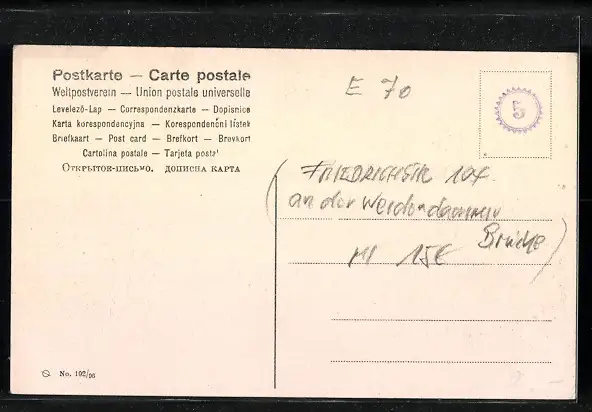 Postkarte — Carte postale
Weltpostverein — Union postale universelle
Levelező-Lap — Correspondenzkarte — Dopisnice
Karta korespondencyjna — Korespondenční lístek
Briefkaart — Post card — Brefkort — Brevkort
Cartolina postale — Tarjeta postal
Открытое-письмо. дописна карта
E 70
5
(FRIEDRICHSTR 107
an der Weidendammer
Brücke)
15€
No. 102/06